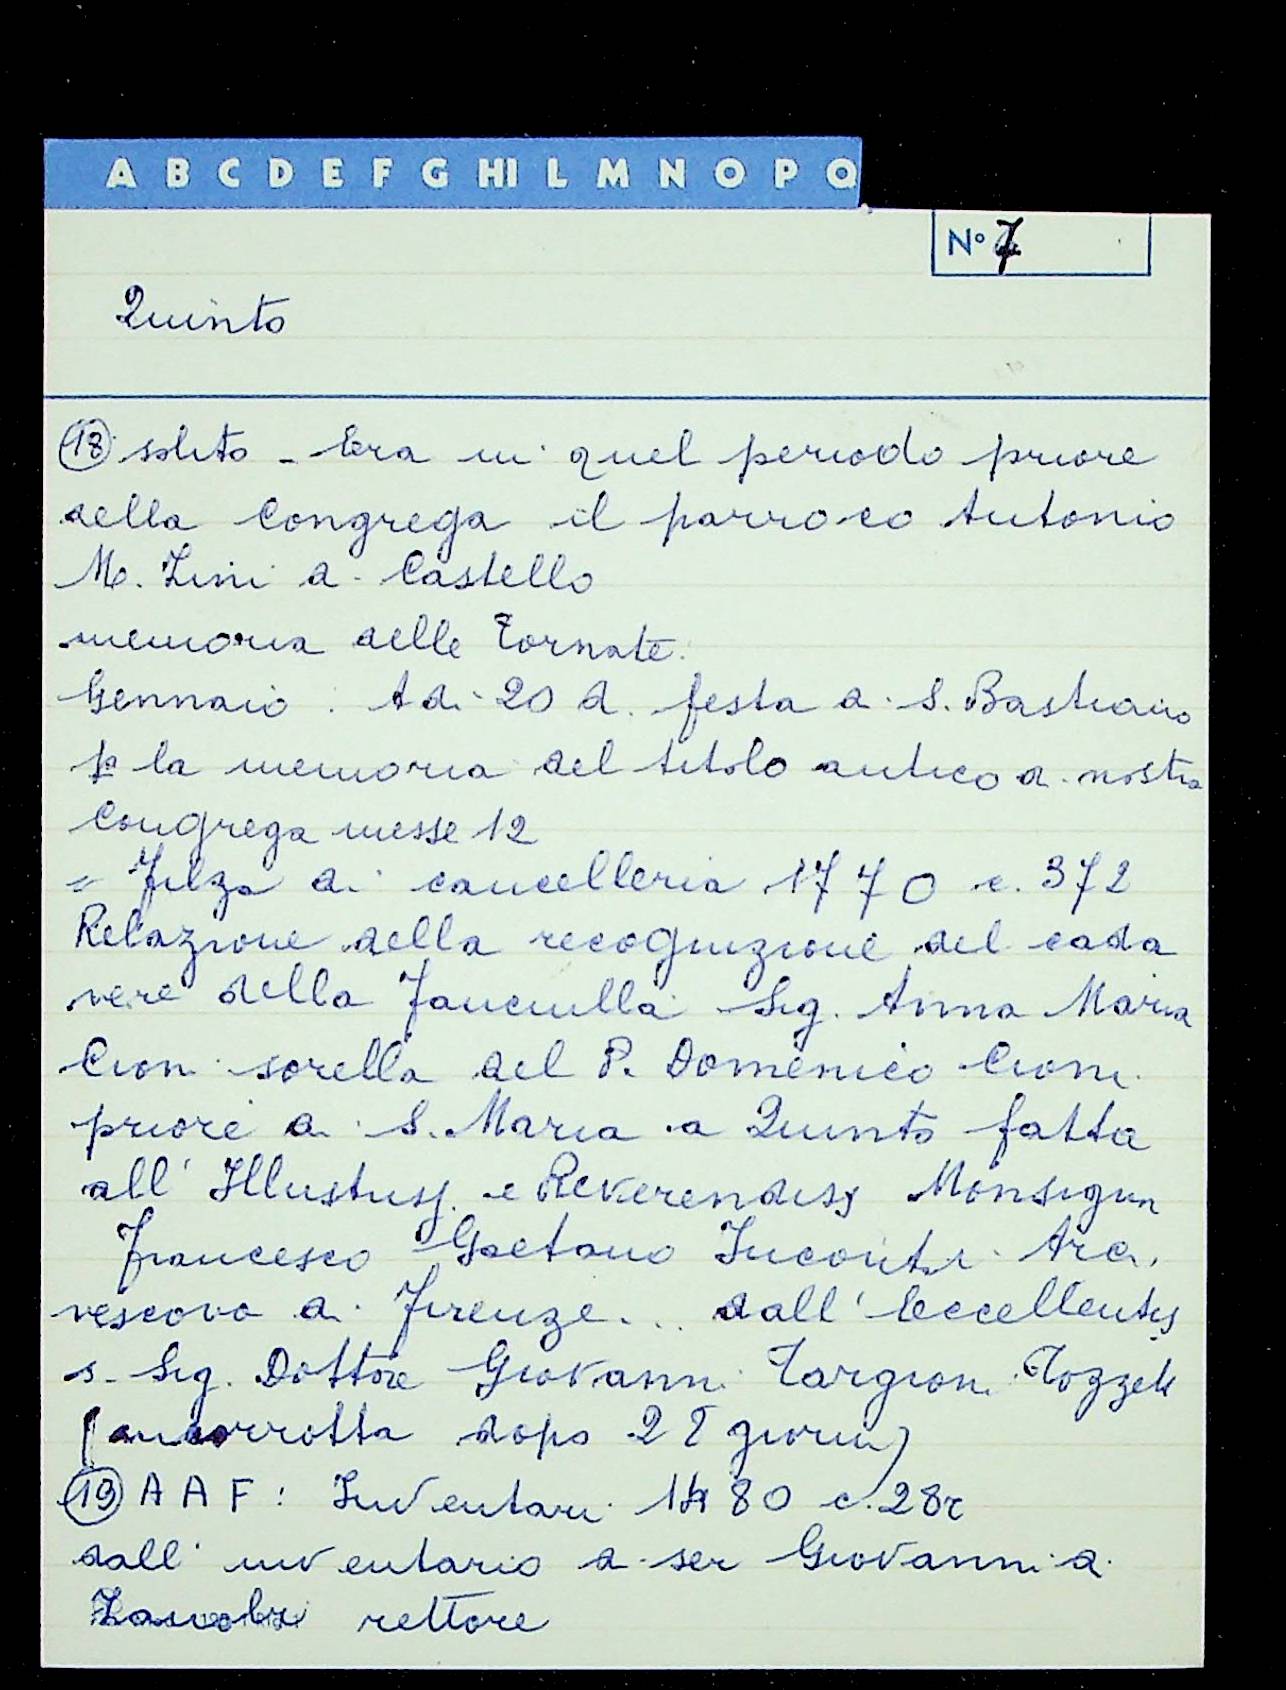 A B C D E F G HI L M N O P Q
N° 7
Quinto
18 solito - Era in quel periodo priore
della Congrega il parroco Antonio
M. Zini di Castello
memoria delle Tornate.
Gennaio. Adì 20 d. festa di S. Bastiano
p la memoria del titolo antico di nostra
Congrega messe 12
= Filza di cancelleria 1770 c. 372
Relazione della recognizione del cada
vere della fanciulla Sig. Anna Maria
Cioni sorella del P. Domenico Cioni
priore di S. Maria a Quinto fatta
all' Illustriss. e Reverendiss Monsignor
Francesco Gaetano Incontri Arci
vescovo di Firenze... dall' Eccellentis
s. Sig. Dottore Giovanni Targioni Tozzetti
(incorrotta dopo 28 giorni)
19 A A F: Inventari 1480 c. 28r
dall' inventario di ser Giovanni di
rettore